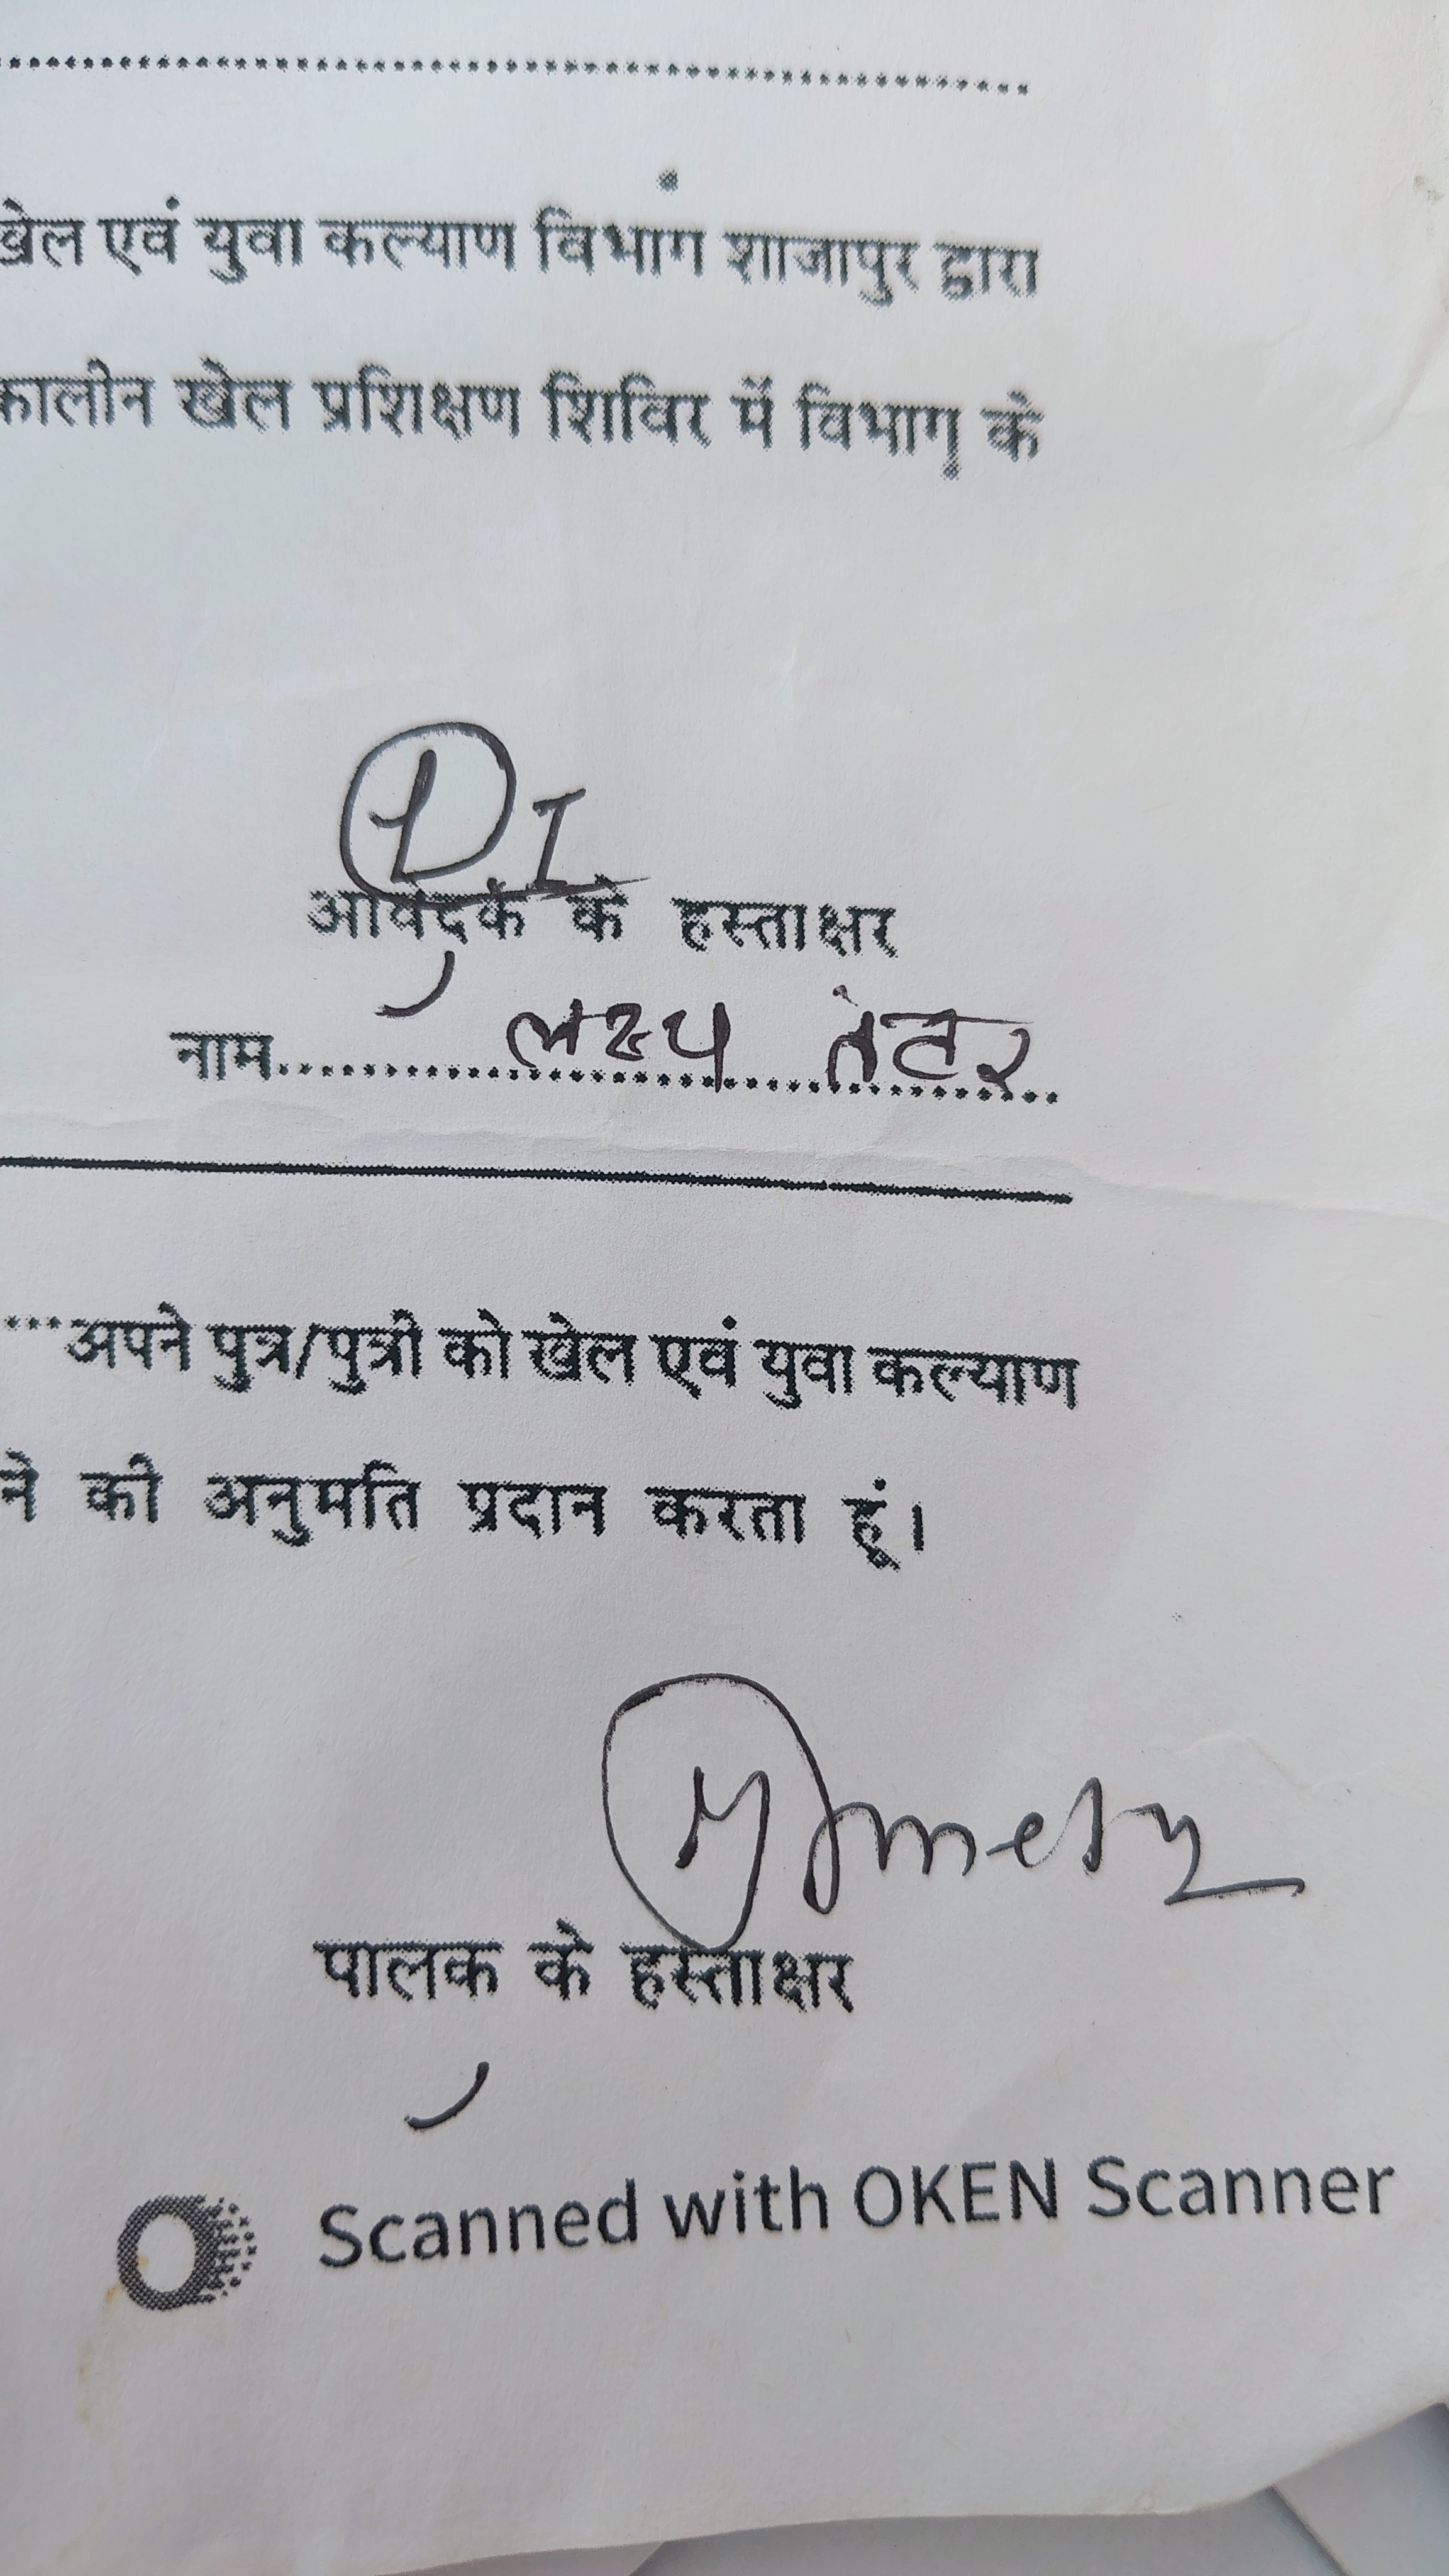 खेल एवं युवा कल्याण विभाग शाजापुर द्वारा
कालीन खेल प्रशिक्षण शिविर में विभाग के
आवेदक के हस्ताक्षर
नाम.................... लक्ष्य
...अपने पुत्र/पुत्री को खेल एवं युवा कल्याण
ने की अनुमति प्रदान करता हूं।
पालक के हस्ताक्षर
Scanned with OKEN Scanner